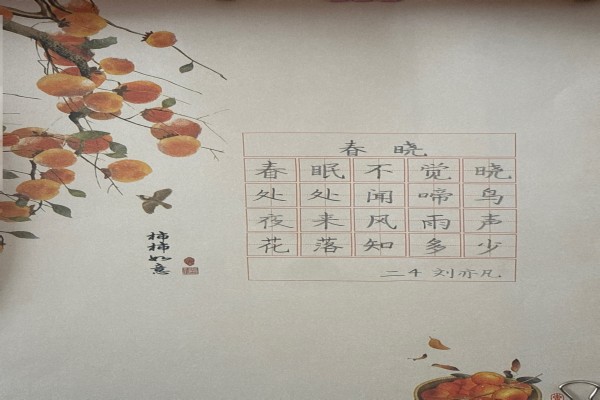 春晓
春眠不觉晓
处处闻啼鸟
夜来风雨声
花落知多少
二4 刘亦凡
柿柿如意